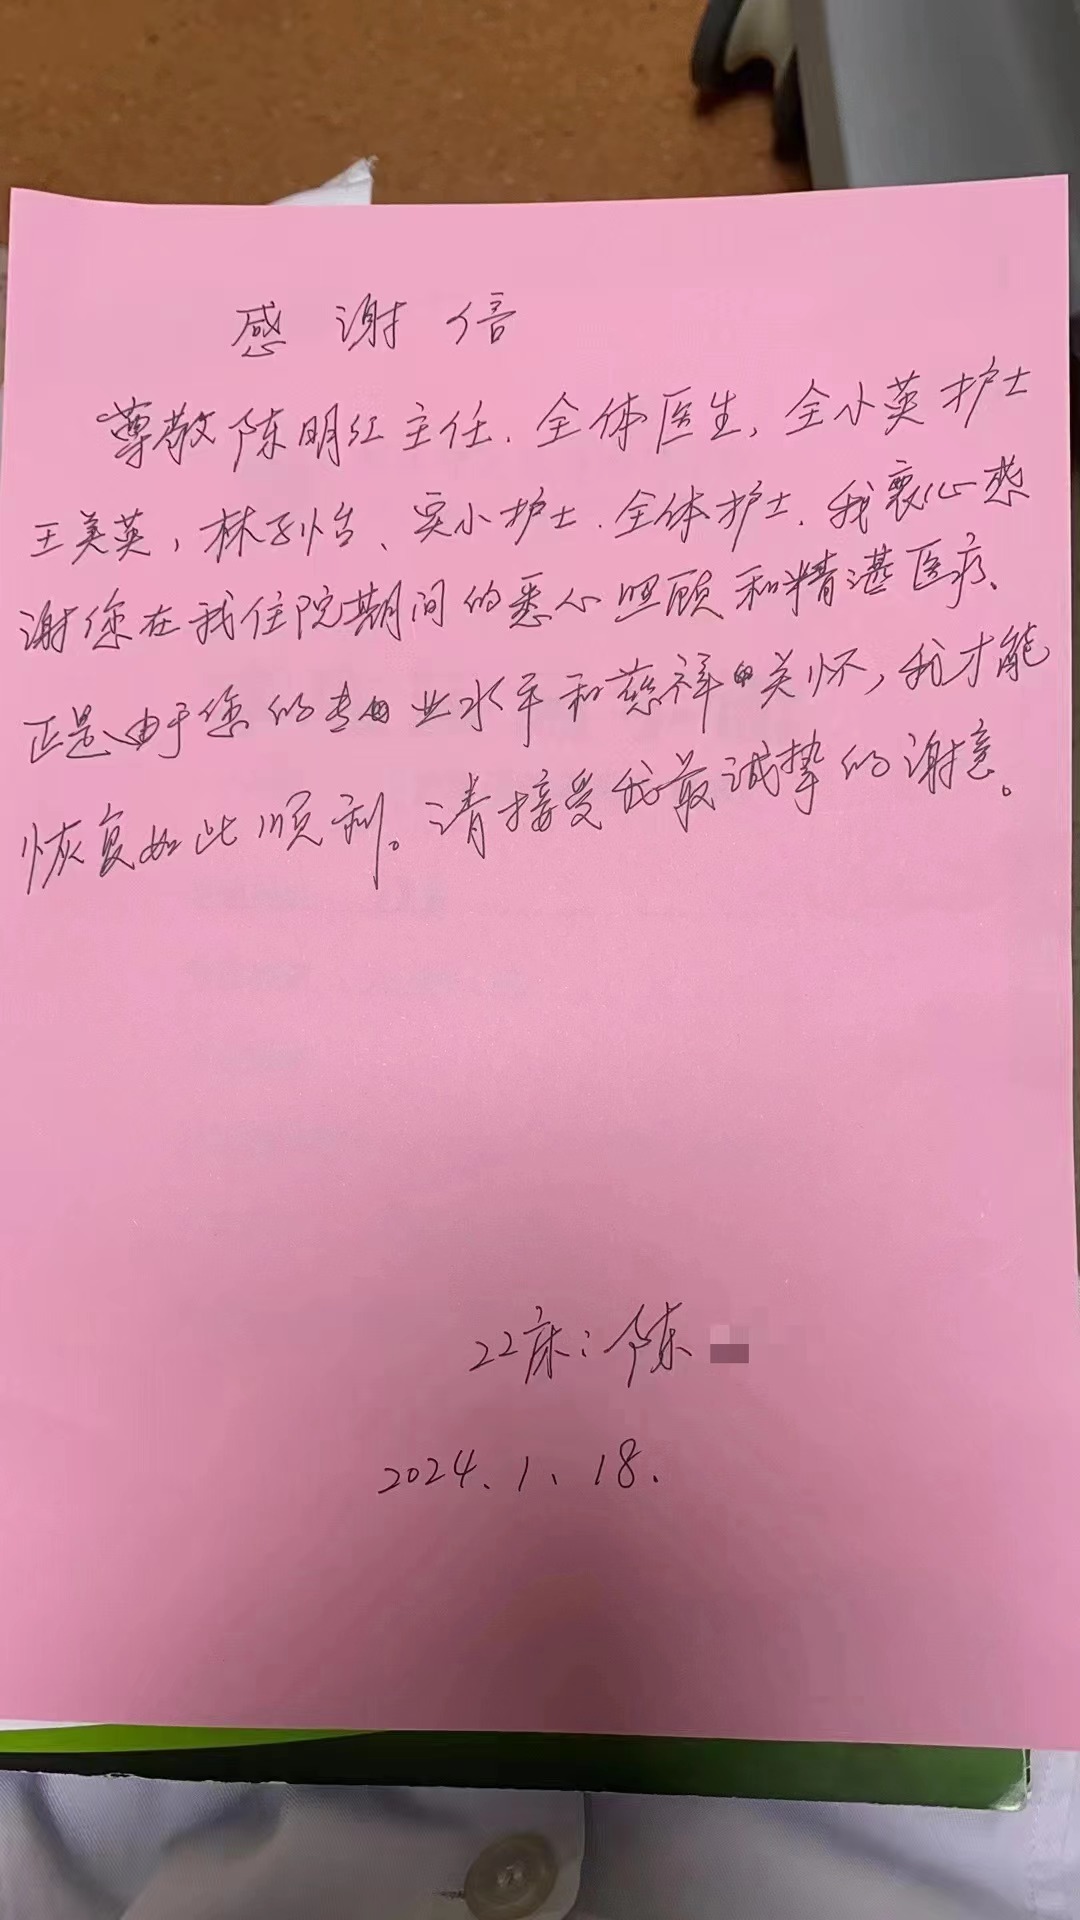 感谢信
尊敬陈明红主任、全体医生、全小英护士
王美英，林孙怡、实小护士、全体护士、我衷心感
谢您在我住院期间的悉心照顾和精湛医疗、
正是由于您的专业水平和慈祥的关怀，我才能
恢复如此顺利。请接受我最诚挚的谢意。
22床：陈
2024、1、18.